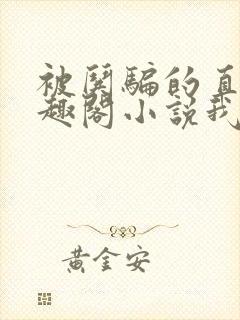 被哄骗的直
趣阁小说我
黄金安